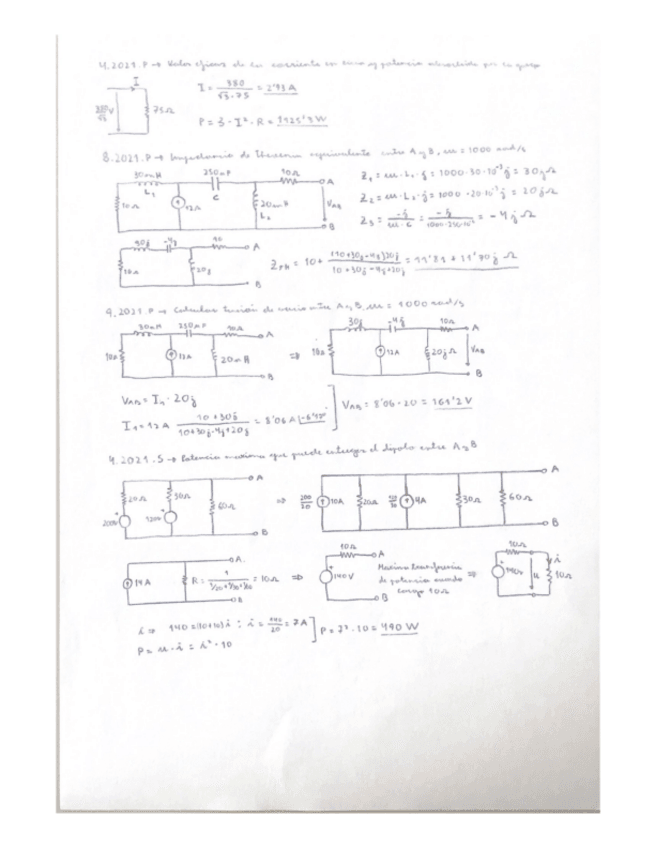 4.2021.P → Valor eficaz de la corriente en carga y potencia absorbida por la carga
I
380/√3 V
75Ω
I = 380/(√3·75) = 2'93 A
P = 3·I²·R = 1925'3 W
8.2021.P → Impedancia de Thevenin equivalente entre A y B, ω = 1000 rad/s
30mH 250μF 10Ω A
L₁ C
10Ω 12A 20mH L₂ V_AB
B
Z₁ = ω·L₁·j = 1000·30·10⁻³j = 30jΩ
Z₂ = ω·L₂·j = 1000·20·10⁻³j = 20jΩ
Z₃ = -j/(ω·C) = -j/(1000·250·10⁻⁶) = -4jΩ
30j -4j 10 A
10Ω 20j
B
Z_Th = 10 + (10+30j-4j)20j/(10+30j-4j+20j) = 11'81 + 11'70j Ω
9.2021.P → Calcular tensión de vacío entre A y B, ω = 1000 rad/s
30mH 250μF 10Ω A
10Ω 12A 20mH
B
⇒
30j -4j 10Ω A
10Ω 12A 20jΩ V_AB
B
V_AB = I₁·20j
I₁ = 12A (10+30j)/(10+30j-4j+20j) = 8'06 A
V_AB = 8'06·20 = 161'2 V
4.2021.S → Potencia maxima que puede entregar el dipolo entre A y B
20Ω 30Ω 60Ω A
200V 120V
B
⇒
200/20 10A 20Ω 4A 30Ω 60Ω A
B
14A R = 1/(1/20+1/30+1/60) = 10Ω A
B
⇒
10Ω A
140V
B
Maxima transferencia
de potencia cuando
carga 10Ω
⇒
10Ω i
140V u 10Ω
i ⇒ 140 = (10+10)i ; i = 140/20 = 7A
P = u·i = i²·10
P = 7²·10 = 490 W